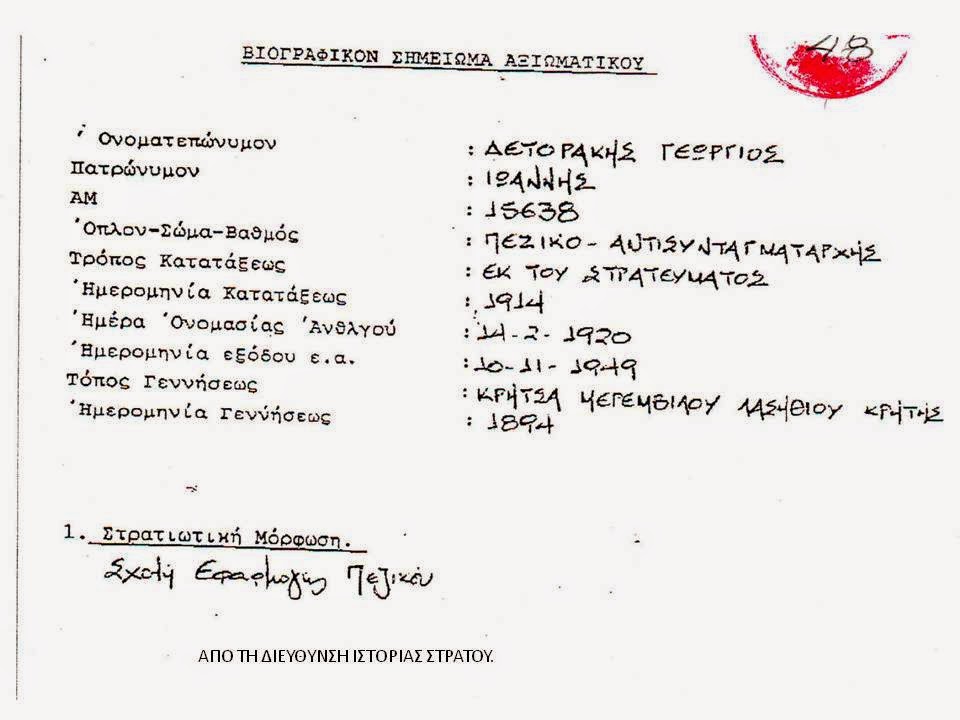 48
ΒΙΟΓΡΑΦΙΚΟΝ ΣΗΜΕΙΩΜΑ ΑΞΙΩΜΑΤΙΚΟΥ
Ὀνοματεπώνυμον : ΔΕΤΟΡΑΚΗΣ ΓΕΩΡΓΙΟΣ
Πατρώνυμον : ΙΩΑΝΝΗΣ
ΑΜ : 15638
Ὅπλον-Σώμα-Βαθμός : ΠΕΖΙΚΟ - ΑΝΤΙΣΥΝΤΑΓΜΑΤΑΡΧΗΣ
Τρόπος Κατατάξεως : ΕΚ ΤΟΥ ΣΤΡΑΤΕΥΜΑΤΟΣ
Ἡμερομηνία Κατατάξεως : 1914
Ἡμέρα Ὀνομασίας Ἀνθλγού : 14-2-1920
Ἡμερομηνία εξόδου ε.α. : 10-11-1949
Τόπος Γεννήσεως : ΚΡΗΤΣΑ ΜΕΡΕΜΒΙΛΟΥ ΛΑΣΗΘΙΟΥ ΚΡΗΤΗΣ
Ἡμερομηνία Γεννήσεως : 1894
1. Στρατιωτική Μόρφωση.
Σχολή Εφαρμογής Πεζικού
ΑΠΟ ΤΗ ΔΙΕΥΘΥΝΣΗ ΙΣΤΟΡΙΑΣ ΣΤΡΑΤΟΥ.